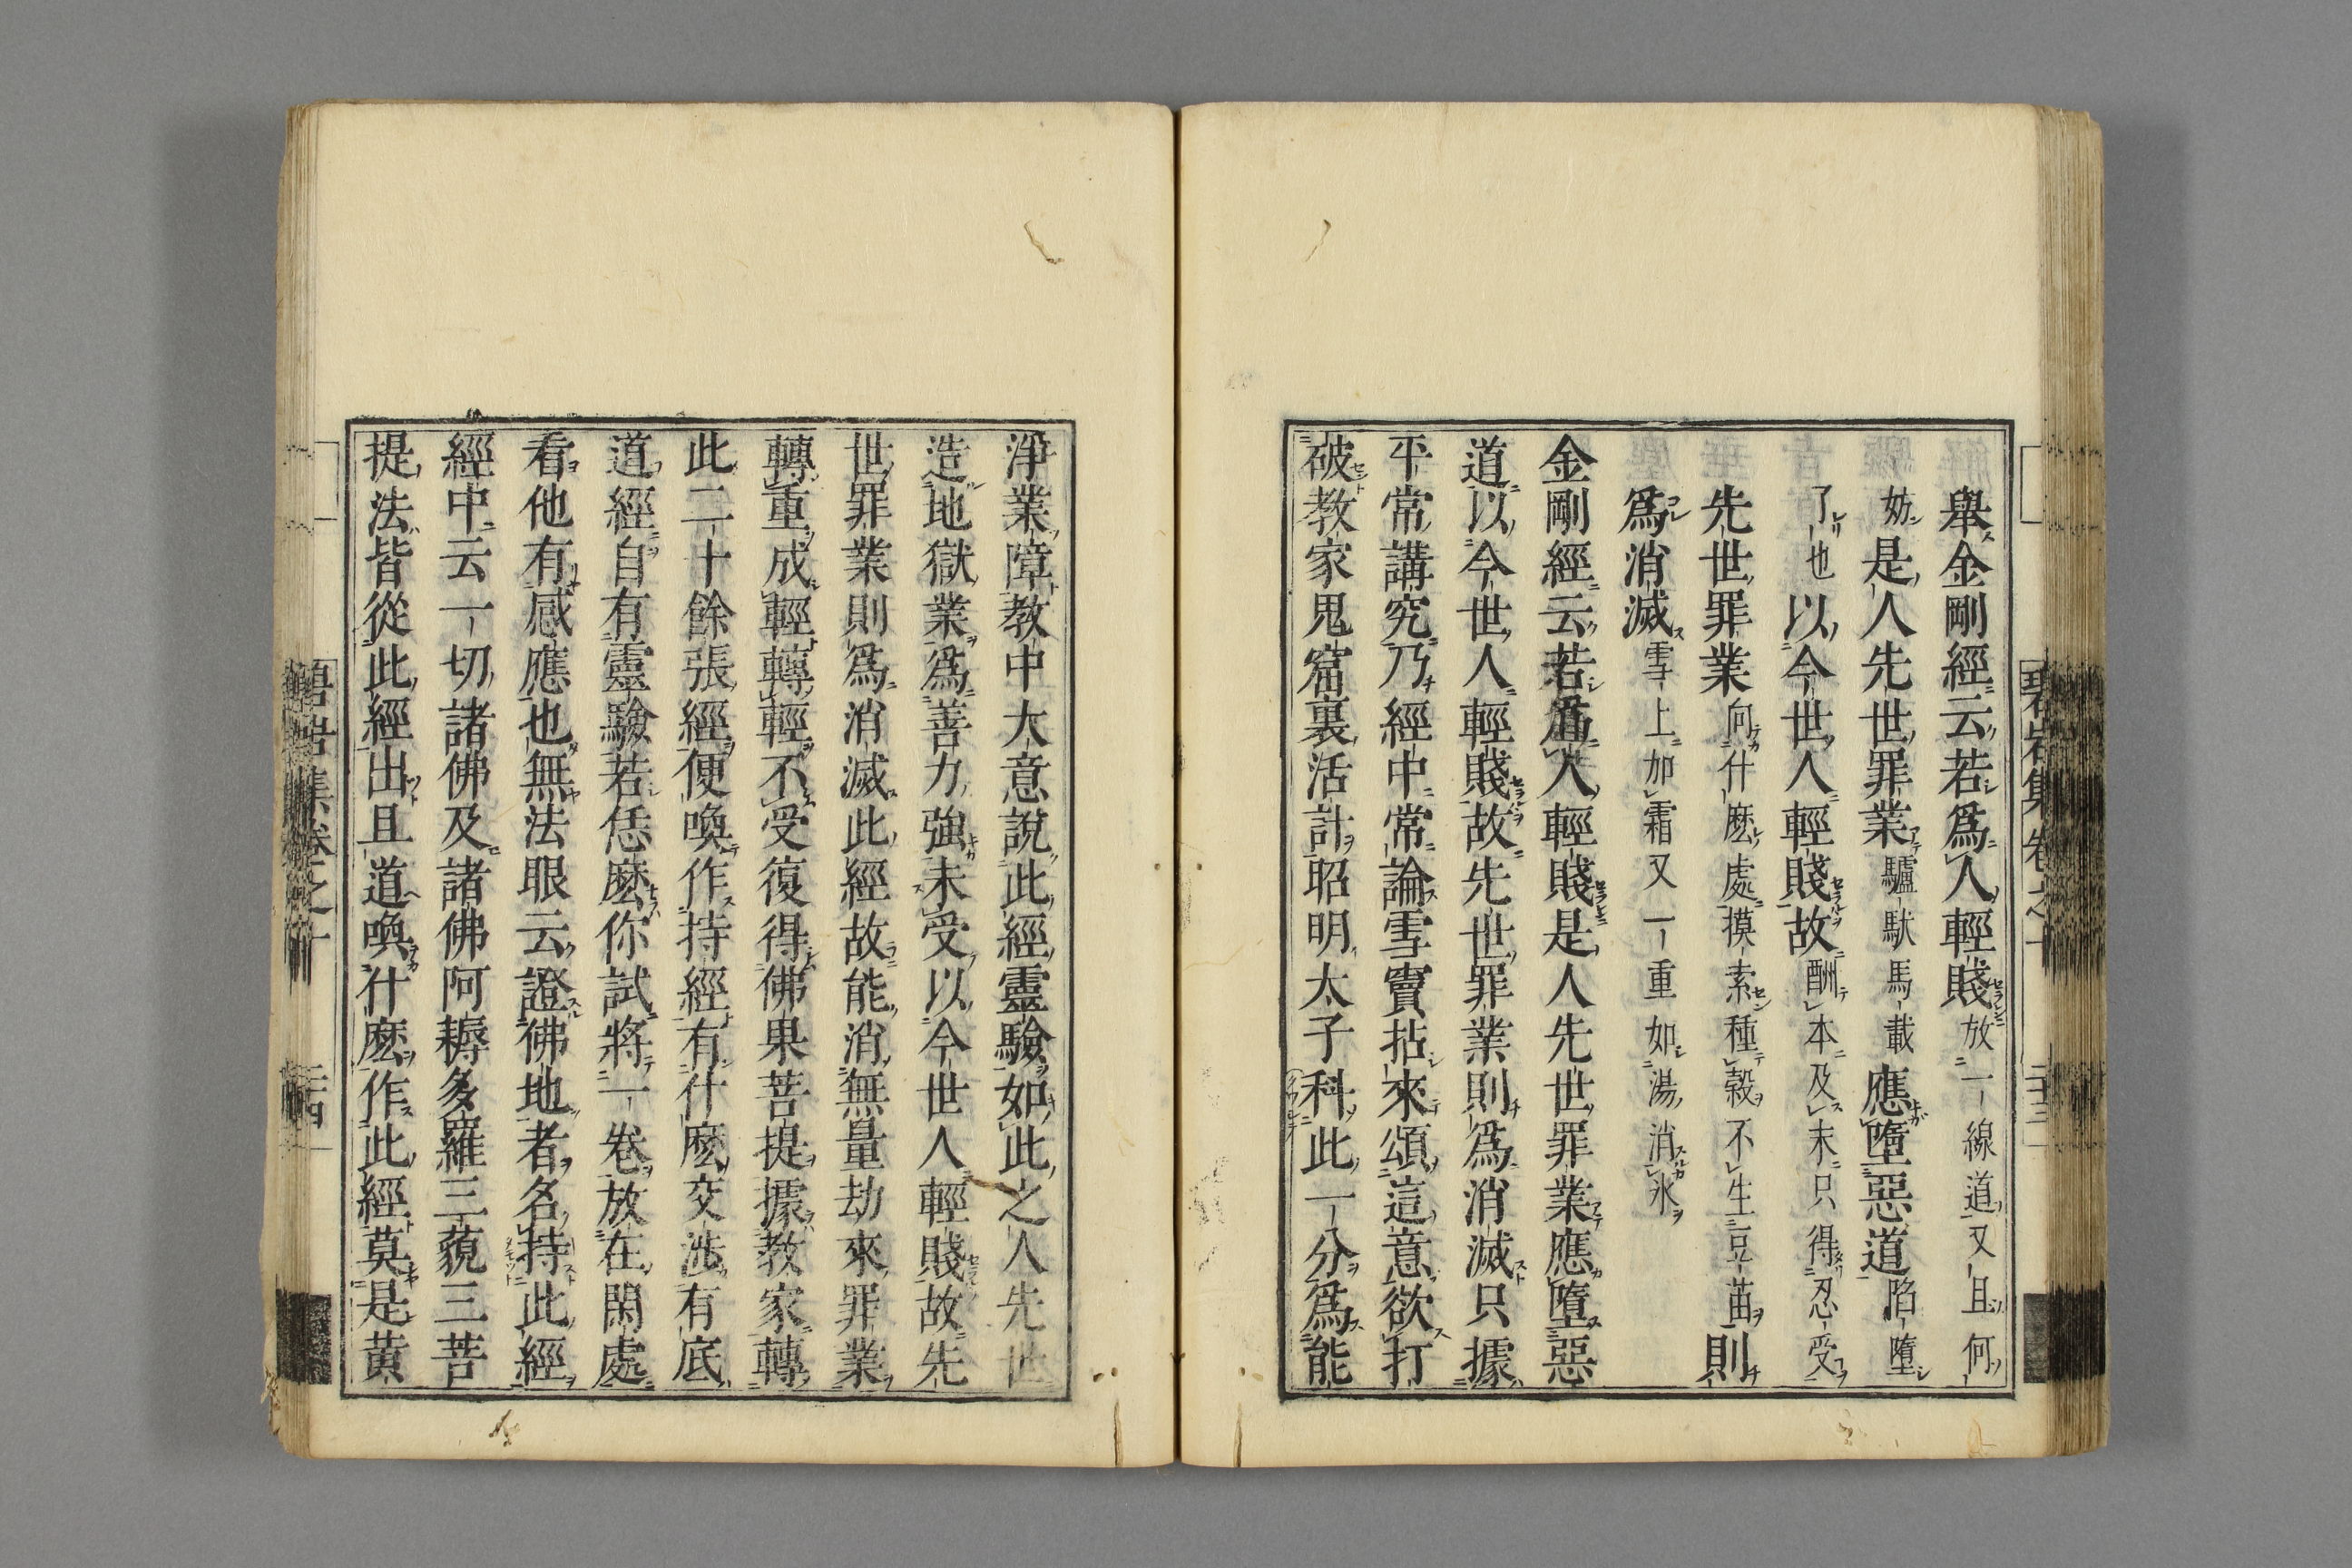 舉金剛經云若爲人輕賤放一線道又且何
妨是人先世罪業驢馱馬載應墮惡道陷墮
了也以今世人輕賤故酬本及末只得忍受
先世罪業向什麽處摸索種穀不生豆苗則
爲消滅雪上加霜又一重如湯消氷
金剛經云若爲人輕賤是人先世罪業應墮惡
道以今世人輕賤故先世罪業則爲消滅只據
平常講究乃經中常論雪竇拈來頌這意欲打
破教家鬼窟裏活計昭明太子科此一分爲能
淨業障教中大意說此經靈驗如此之人先世
造地獄業爲善力強未受以今世人輕賤故先
世罪業則爲消滅此經故能消無量劫來罪業
轉重成輕轉輕不受復得佛果菩提據教家轉
此二十餘張經便喚作持經有什麽交涉有底
道經自有靈驗若恁麽你試將一卷放在閑處
看他有感應也無法眼云證佛地者名持此經
經中云一切諸佛及諸佛阿耨多羅三藐三菩
提法皆從此經出且道喚什麽作此經莫是黄